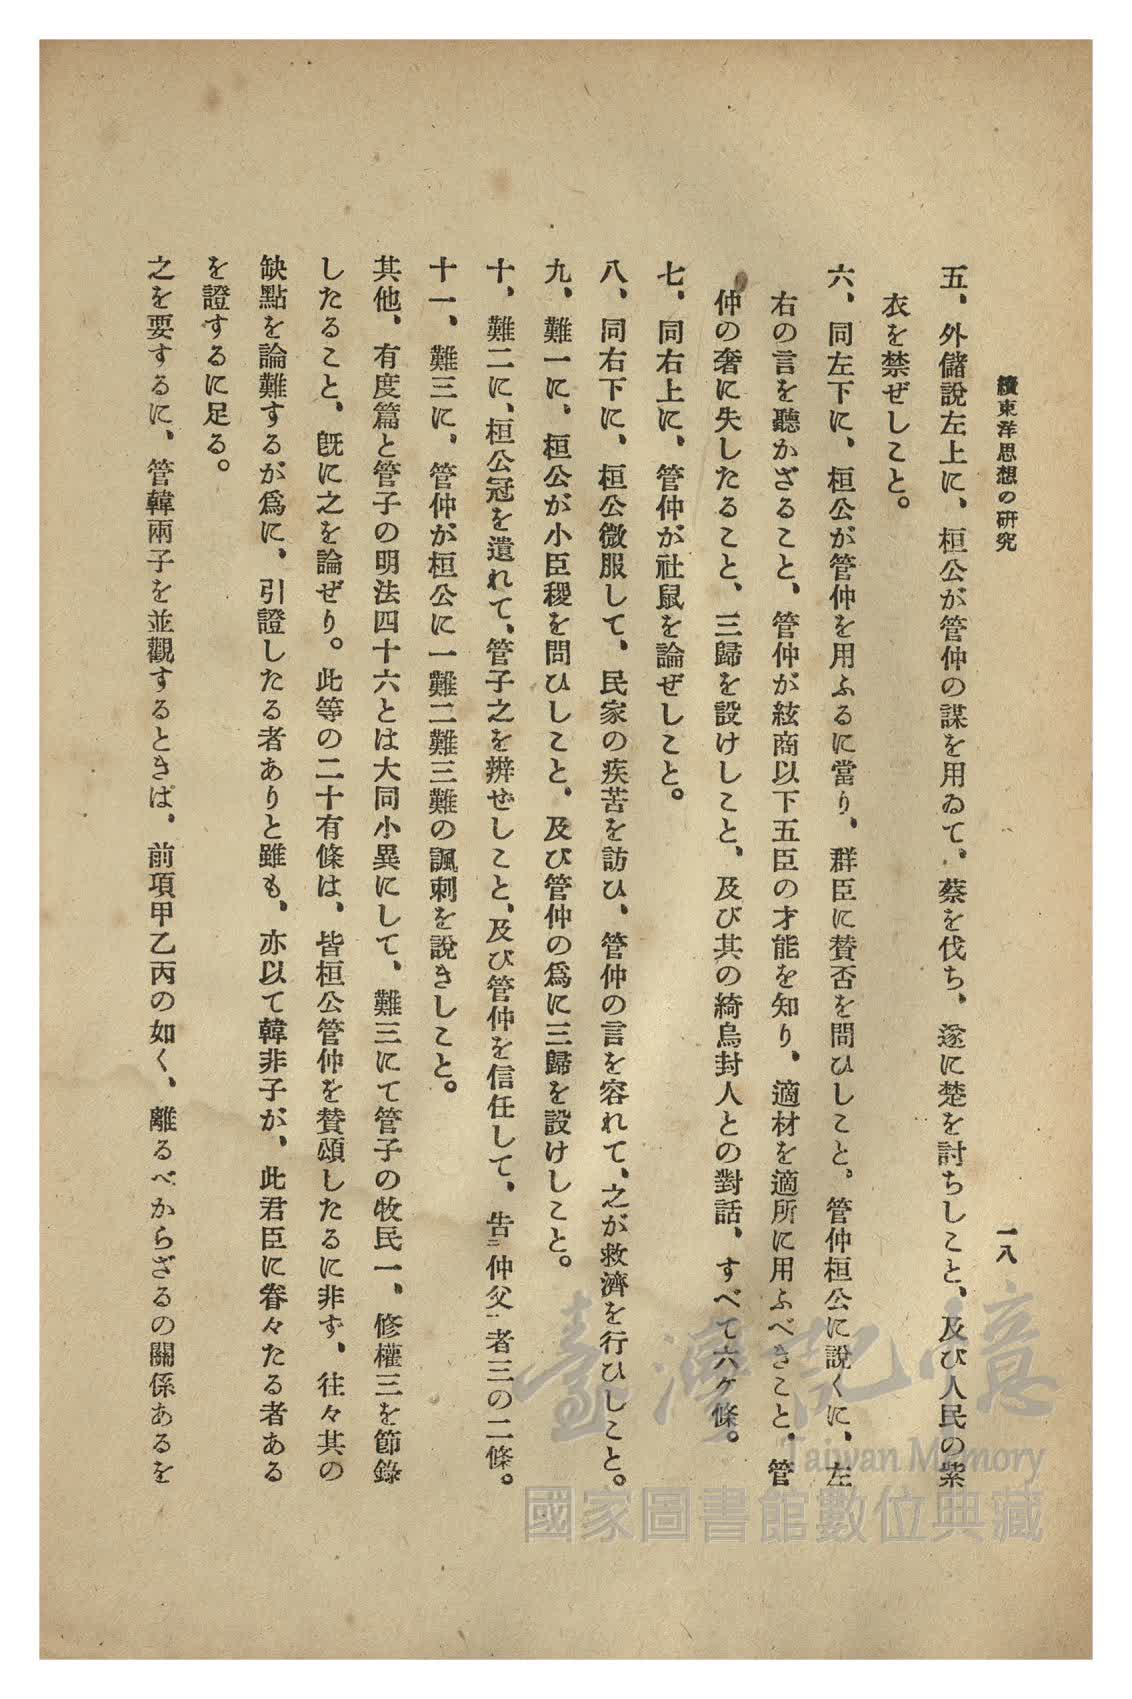 續東洋思想の硏究
一八
五、外儲說左上に、桓公が管仲の謀を用ゐて、蔡を伐ち、遂に楚を討ちしこと、及び人民の紫
衣を禁ぜしこと。
六、同左下に、桓公が管仲を用ふるに當り、群臣に賛否を問ひしこと。管仲桓公に說くに、左
右の言を聽かざること、管仲が絃商以下五臣の才能を知り、適材を適所に用ふべきこと、管
仲の奢に失したること、三歸を設けしこと、及び其の綺烏封人との對話、すべて六ケ條。
七、同右上に、管仲が社鼠を論ぜしこと。
八、同右下に、桓公微服して、民家の疾苦を訪ひ、管仲の言を容れて、之が救濟を行ひしこと。
九、難一に、桓公が小臣稷を問ひしこと、及び管仲の爲に三歸を設けしこと。
十、難二に、桓公冠を遺れて、管子之を辨ぜしこと、及び管仲を信任して、告二仲父一者三の二條。
十一、難三に、管仲が桓公に一難二難三難の諷刺を說きしこと。
其他、有度篇と管子の明法四十六とは大同小異にして、難三にて管子の牧民一、修權三を節錄
したること、旣に之を論ぜり。此等の二十有條は、皆桓公管仲を賛頌したるに非ず、往々其の
缺點を論難するが爲に、引證したる者ありと雖も、亦以て韓非子が、此君臣に眷々たる者ある
を證するに足る。
之を要するに、管韓兩子を並觀するときは、前項甲乙丙の如く、離るべからざるの關係あるを
臺灣記憶
Taiwan Memory
國家圖書館數位典藏